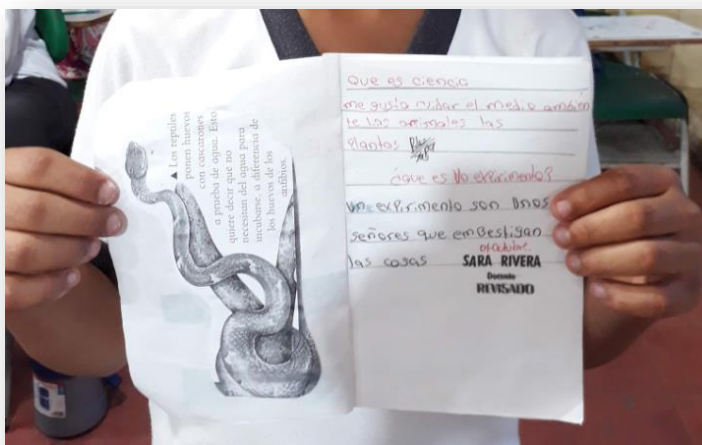 ▲ Los reptiles
ponen huevos
con cascarones
a prueba de agua. Esto
quiere decir que no
necesitan del agua para
incubarse, a diferencia de
los huevos de los
anfibios.
Que es ciencia
me gusta cuidar el medio ambien
te los animales las
Plantas
¿que es un experimento?
un experimento son unos
señores que embestigan
las cosas
SARA RIVERA
Docente
REVISADO